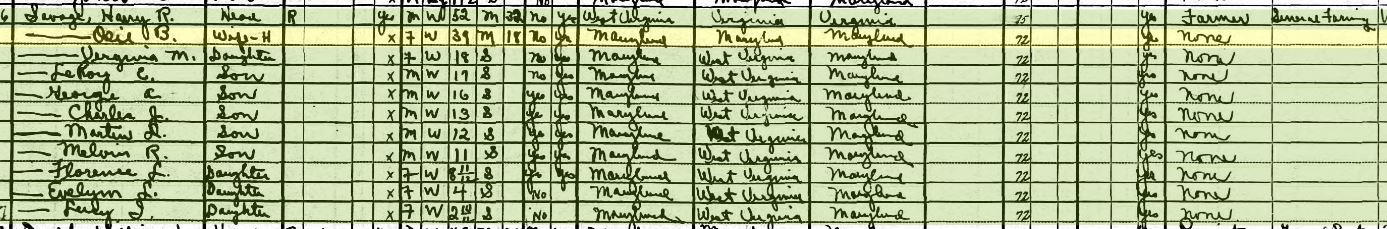 6 Savage, Harry R. Head R Yes M W 52 M 32 No Yes West Virginia Virginia Virginia 75 Yes Farmer General Farming
—— B. Wife-H x F W 39 M 18 No Yes Maryland Maryland Maryland 72 Yes None
—— Verginia M. Daughter x F W 18 S No Yes Maryland West Virginia Maryland 72 Yes None
—— LeRoy C. Son x M W 17 S No Yes Maryland West Virginia Maryland 72 Yes None
—— George A. Son x M W 16 S Yes Yes Maryland West Virginia Maryland 72 Yes None
—— Charles J. Son x M W 13 S Yes Yes Maryland West Virginia Maryland 72 Yes None
—— Martin L. Son x M W 12 S Yes Yes Maryland West Virginia Maryland 72 Yes None
—— Melvin R. Son x M W 11 S Yes Yes Maryland West Virginia Maryland 72 Yes None
—— Florence L. Daughter x F W 8 11/12 S Yes Yes Maryland West Virginia Maryland 72 Yes None
—— Evelynn L. Daughter x F W 4 S No Maryland West Virginia Maryland 72 Yes None
—— Daughter x F W S No Maryland West Virginia Maryland 72 Yes None